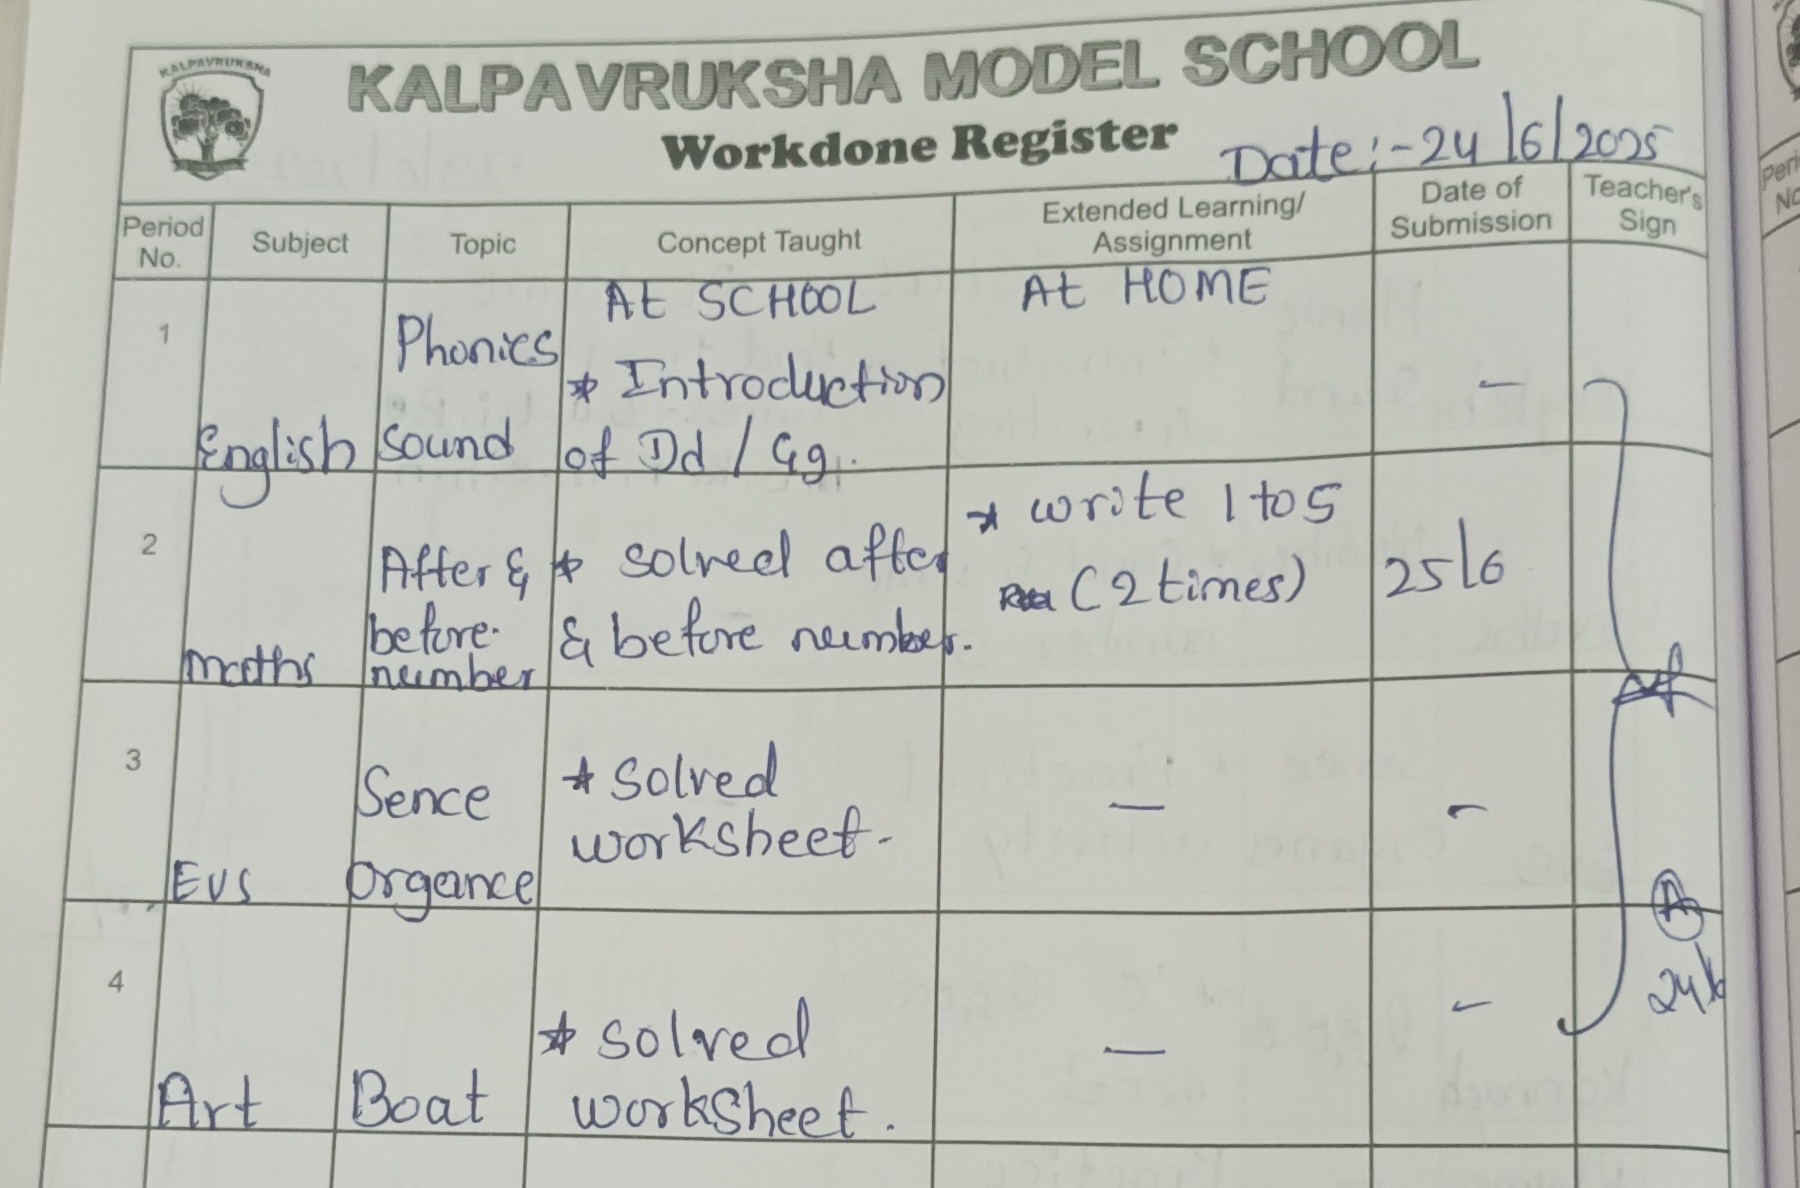 KALPAVRUKSHA
KALPAVRUKSHA MODEL SCHOOL
Workdone Register
Date:-24/6/2025
Period No.
Subject
Topic
Concept Taught
Extended Learning/
Assignment
Date of
Submission
Teacher's
Sign
At SCHOOL
At HOME
1
English
Phonics
sound
* Introduction
of Dd / Gg.
-
2
maths
After &
before.
number
* solved after
& before number.
* write 1 to 5
(2 times)
25/6
3
EVS
Sence
Organce
* Solved
worksheet-
-
-
4
Art
Boat
* solved
workSheet.
-
-
24/6
Peri
No